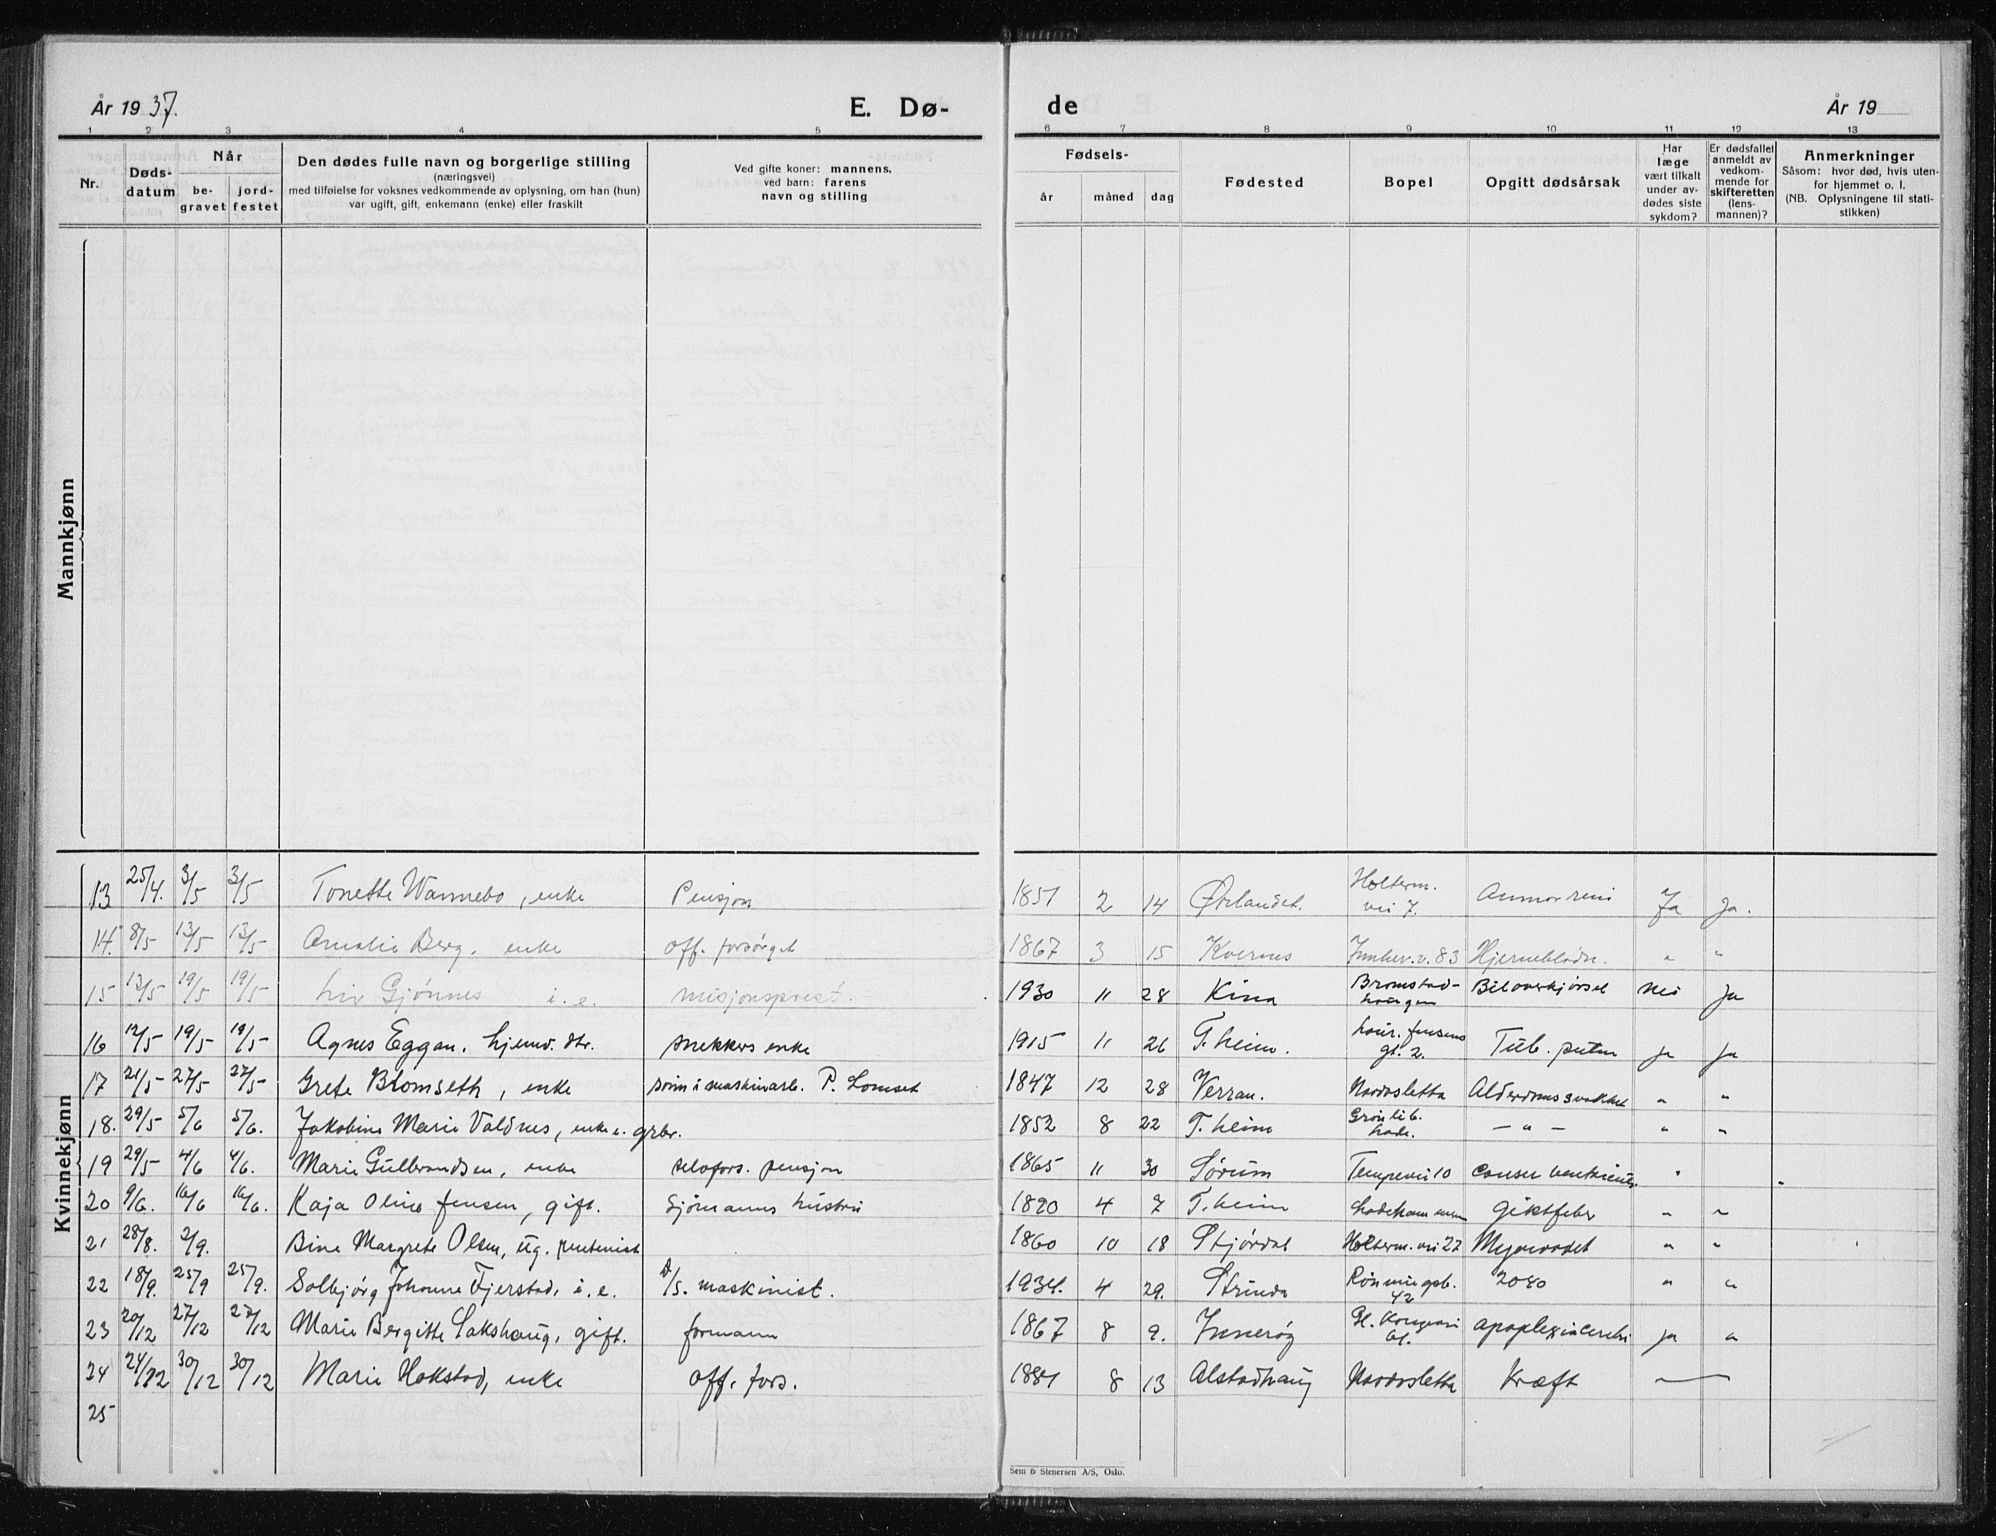 År 1937.
E. Dø-
1 2 3 4 5
Nr.
Døds-
datum
Når
be-
gravet
jord-
festet
Den dødes fulle navn og borgerlige stilling
(næringsvei)
med tilføielse for voksnes vedkommende av oplysning, om han (hun)
var ugift, gift, enkemann (enke) eller fraskilt
Ved gifte koner: mannens,
ved barn: farens
navn og stilling
Mannkjønn
Kvinnekjønn
13 25/4. 3/5 3/5 Tonette Wannebo, enke Pensjon
14. 8/5 13/5 13/5 Amalie Berg. enke off. forsørget
15 13/5 19/5 19/5 Liv Gjønnes i. e. misjonsprest.
16 12/5 19/5 19/5 Agnes Eggan. hjemv. dtr. snekkers enke
17 21/5 27/5 27/5 Grete Blomseth, enke sønn i maskinarb. P. Lomset
18. 29/5 5/6 5/6. Jakobine Marie Valdnes, enke e. grbr.
19 29/5 4/6 4/6. Marie Gulbrandsen, enke selvfors. pensjon
20 9/6. 16/6 16/6. Kaja Oline Jensen, gift. Sjømanns hustru
21 28/8. 2/9. Bine Margrete Olsen, ug. pentenist
22 18/9. 25/9 25/9. Solbjørg Johanne Fjerstad. i. e. d/s. maskinist.
23 20/12 27/12 27/12 Marie Bergitte Sakshaug, gift. formann
24 24/12 30/12 30/12 Marie Hokstad, enke off. fors.
25
de
År 19
6 7 8 9 10 11 12 13
Fødsels-
år måned dag
Fødested
Bopel
Opgitt dødsårsak
Har
læge
vært tilkalt
under av-
dødes siste
sykdom?
Er dødsfallet
anmeldt av
vedkom-
mende for
skifteretten
(lens-
mannen)?
Anmerkninger
Såsom: hvor død, hvis uten-
for hjemmet o. l.
(NB. Oplysningene til stati-
stikken)
1851 2 14 Ørlandet. Holterm. vei 7. Ja Ja.
1867 3 15 Kvernes Innher. v. 83 Hjerneblødn. " "
1930 11 28 Kina Bromstad- Biloverkjørsel nei Ja
1915 11 26 T.heim. Laur. Jensens gt. 2. Tub. pulm ja Ja
1847 12 28 Verran. Nardosletta Alderdomssvakhet " "
1852 8 22 T.heim Grønlib. Lade. — " — " "
1865 11 30 Sørum Tempevei 10 "
1890 4 7 T.heim Ladehammeren giktfeber " "
1860 10 18 Stjørdal Holterm. vei 27 " "
1934. 4 29. Strinda Rønningsb. 42 2080 " "
1867 8 9. Inderøy Gl. Kongevei apoplexia cerebri ja "
1881 8 13 Alstadhaug Nardosletta Kræft
Sem & Stenersen A/S, Oslo.